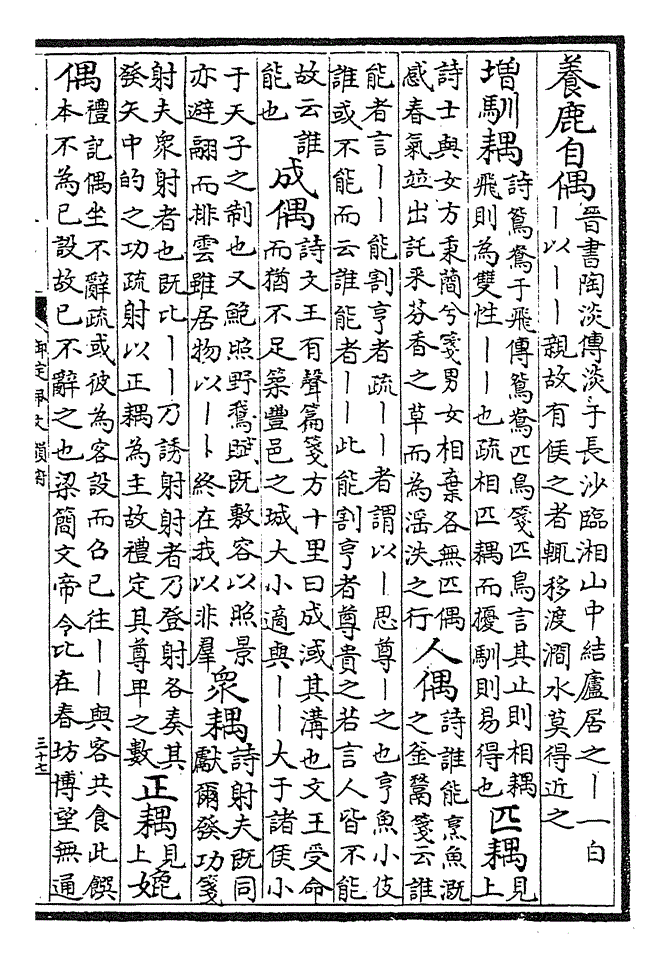 養鹿自偶 晉書陶淡傳淡于長沙臨湘山中結廬居之丨一白丨以丨丨親故有侯之者輒移渡澗水莫得近之
增馴耦 詩鴛鴦于飛傳鴛鴦匹鳥箋匹鳥言其止則相耦飛則為雙性丨丨也疏相匹耦而擾馴則易得也 匹耦 見上
詩士與女方秉蕑兮箋男女相棄各無匹偶感春氣並出託采芬香之草而為淫泆之行 人偶 詩誰能烹魚溉之釜鬵箋云誰
能者言丨丨能割亨者疏丨丨者謂以丨思尊丨之也亨魚小伎誰或不能而云誰能者丨丨此能割亨者尊貴之若言人皆不能
故云誰能也 成偶 詩文王有聲篇箋方十里曰成淢其溝也文王受命而猶不足築豐邑之城大小適與丨丨大于諸侯小
于天子之制也又鮑照野鵞賦既敷容以照景亦避翮而排雲雖居物以丨丨終在我以非羣 衆耦 詩射夫既同獻爾發功箋
射夫衆射者也既比丨丨乃誘射射者乃登射各奏其發矢中的之功疏射以正耦為主故禮定其尊卑之數 正耦 見上 媲
偶 禮記偶坐不辭疏或彼為客設而召己往丨丨與客共食此饌本不為己設故己不辭之也梁簡文帝令比在春坊博望無通
御定佩文韻府
三十七